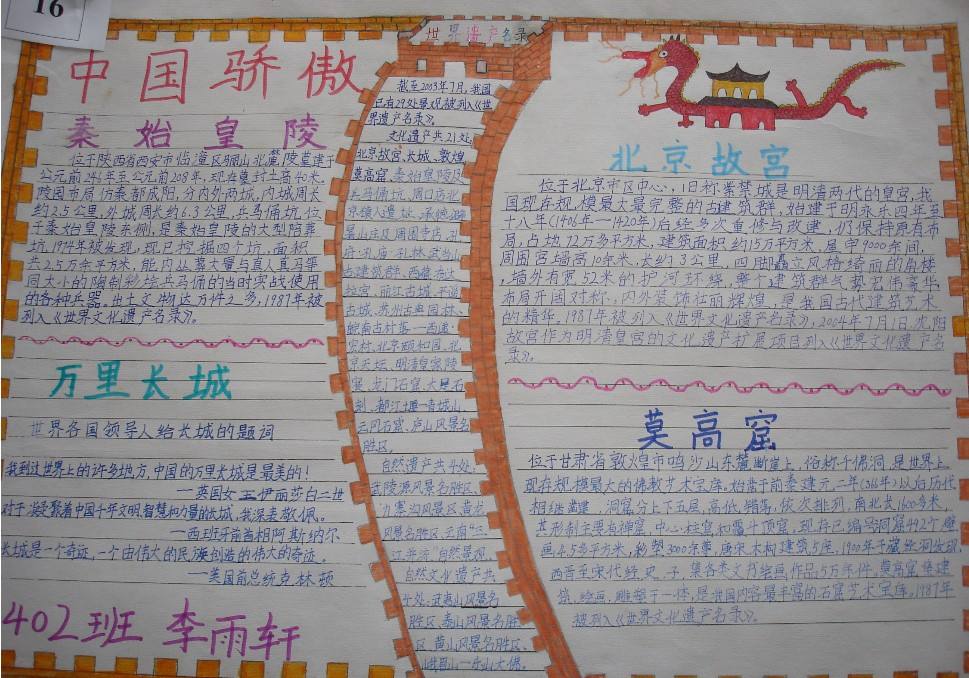 16
世界遗产名录
中国骄傲
秦始皇陵
位于陕西省西安市临潼区骊山北麓陵墓建于
公元前246年至公元前208年,现存墓封土高40米,
陵园布局仿秦都咸阳,分内外两城,内城周长
约2.5公里,外城周长约6.3公里,兵马俑坑,位
于秦始皇陵东侧,是秦始皇陵的大型陪葬
坑,1974年被发现,现已挖掘四个坑,面积
共2.5万余平方米,能内丛葬大量与真人真马等
同大小的陶制彩绘兵马俑的当时实战使用
的各种兵器,出土文物达万件之多,1987年被
列入《世界文化遗产名录》。
万里长城
世界各国领导人给长城的题词
我到过世界上的许多地方,中国的万里长城是最美的!
—英国女王伊丽莎白二世
对于凝聚着中国千年文明,智慧和力量的长城,我深表敬佩。
—西班牙前首相阿斯纳尔
长城是一个奇迹,一个由伟大的民族创造的伟大的奇迹。
—美国前总统克林顿
402班 李雨轩
截至2003年7月,我国
已有29处景况被列入《世
界遗产名录》。
文化遗产共21处,
北京故宫、长城、敦煌
莫高窟、秦始皇陵及
兵马俑坑、周口店北
京猿人遗址、承德避暑
暑山庄及周围寺庙、孔
府·孔庙·孔林、武当山
古建筑群、西藏布达
拉宫、丽江古城、平遥
古城、苏州古典园林、
皖南古村落—西递·
宏村、北京颐和园、北
京天坛、明清皇家陵
寝、龙门石窟、大足石
刻、都江堰—青城山、
云冈石窟、庐山风景名
胜区,
自然遗产共 处:
武陵源风景名胜区、
九寨沟风景区、黄龙
风景名胜区、云南“三
江并流”自然景观,
自然文化遗产共
处:武夷山风景名
胜区、泰山风景名胜
区、黄山风景名胜区、
峨眉山—乐山大佛。
北京故宫
位于北京市区中心,旧称紫禁城是明清两代的皇宫,我
国现存规模最大最完整的古建筑群,始建于明永乐四年至
十八年(1406年—1420年)后经多次重修与改建,仍保持原有布
局,占地72万多平方米,建筑面积约15万平方米,屋宇9000年间,
周围宫墙高10余米,长约3公里,四脚矗立风格绮丽的角楼
,墙外有宽52米的护河环绕,整个建筑群气势宏伟豪华
布局开阔对称,内外装饰壮丽辉煌,是我国古代建筑艺术
的精华,1987年被列入《世界文化遗产名录》,2004年7月1日,沈阳
故宫作为明清皇宫的文化遗产扩展项目列入《世界文化遗产
名录》。
莫高窟
位于甘肃省敦煌市鸣沙山东麓断崖上,俗称千佛洞,是世界上
现存规模最大的佛教艺术宝库。始凿于前秦建元二年(366年)以后历代
相继凿建,洞窟分上下五层,高低错落,依次排列,南北长1600多米,
其形制主要有禅窟,中心柱窟和覆斗顶窟,现存已编号洞窟492个,壁
画4.5万多平方米,彩塑3000余尊,唐宋木构建筑5座,1900年于藏经洞发现,
西晋至宋代经,史,子,集各类文书绘画作品5万余件,莫高窟集建
筑,绘画,雕塑于一体,是我国内容最丰富的石窟艺术宝库。1987年
被列入《世界文化遗产名录》。